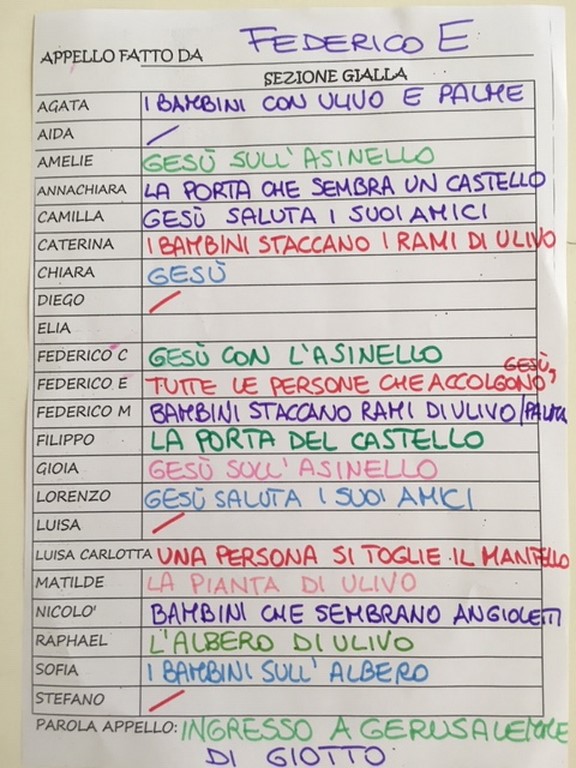 APPELLO FATTO DA FEDERICO E
SEZIONE GIALLA
AGATA I BAMBINI CON ULIVO E PALME
AIDA /
AMELIE GESÙ SULL'ASINELLO
ANNACHIARA LA PORTA CHE SEMBRA UN CASTELLO
CAMILLA GESÙ SALUTA I SUOI AMICI
CATERINA I BAMBINI STACCANO I RAMI DI ULIVO
CHIARA GESÙ
DIEGO /
ELIA
FEDERICO C GESÙ CON L'ASINELLO
FEDERICO E TUTTE LE PERSONE CHE ACCOLGONO GESÙ,
FEDERICO M BAMBINI STACCANO RAMI DI ULIVO/PALMA
FILIPPO LA PORTA DEL CASTELLO
GIOIA GESÙ SULL'ASINELLO
LORENZO GESÙ SALUTA I SUOI AMICI
LUISA /
LUISA CARLOTTA UNA PERSONA SI TOGLIE IL MANTELLO
MATILDE LA PIANTA DI ULIVO
NICOLO' BAMBINI CHE SEMBRANO ANGIOLETTI
RAPHAEL L'ALBERO DI ULIVO
SOFIA I BAMBINI SULL'ALBERO
STEFANO /
PAROLA APPELLO: INGRESSO A GERUSALEMME
DI GIOTTO